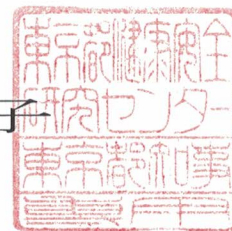 東京都健康安全
研究センター
東京都知事
子